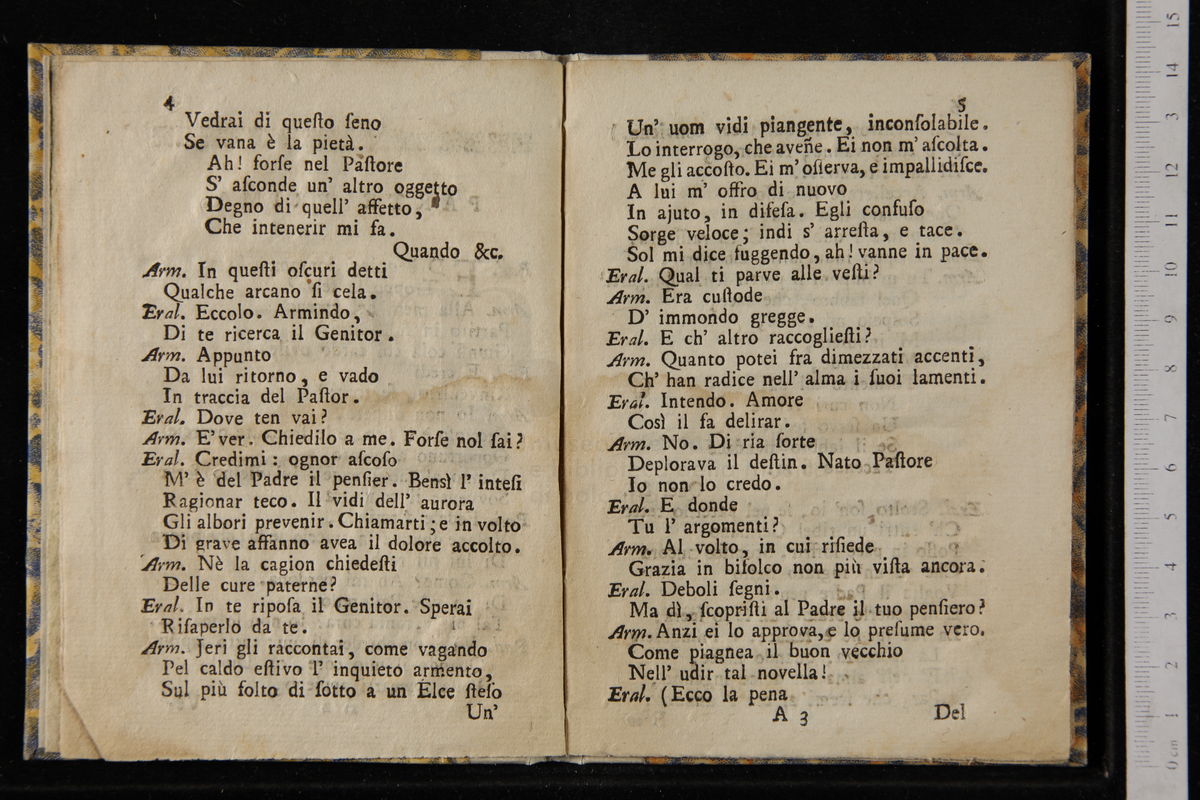 4
Vedrai di queſto ſeno
Se vana è la pietà.
Ah! forſe nel Paſtore
S' aſconde un' altro oggetto
Degno di quell' affetto,
Che intenerir mi fa.
Quando &c.
Arm. In queſti oſcuri detti
Qualche arcano ſi cela.
Eral. Eccolo. Armindo,
Di te ricerca il Genitor.
Arm. Appunto
Da lui ritorno, e vado
In traccia del Paſtor.
Eral. Dove ten vai?
Arm. E'ver. Chiedilo a me. Forſe nol ſai?
Eral. Credimi: ognor aſcoſo
M' è del Padre il penſier. Bensì l' inteſi
Ragionar teco. Il vidi dell' aurora
Gli albori prevenir. Chiamarti; e in volto
Di grave affanno avea il dolore accolto.
Arm. Nè la cagion chiedeſti
Delle cure paterne?
Eral. In te ripoſa il Genitor. Sperai
Riſaperlo da te.
Arm. Jeri gli raccontai, come vagando
Pel caldo eſtivo l' inquieto armento,
Sul più folto di ſotto a un Elce ſteſo
Un'
5
Un' uom vidi piangente, inconſolabile.
Lo interrogo, che aveñe. Ei non m' aſcolta.
Me gli accoſto. Ei m' oſſerva, e impallidiſce.
A lui m' offro di nuovo
In ajuto, in difeſa. Egli confuſo
Sorge veloce; indi s' arreſta, e tace.
Sol mi dice fuggendo, ah! vanne in pace.
Eral. Qual ti parve alle veſti?
Arm. Era cuſtode
D' immondo gregge.
Eral. E ch' altro raccoglieſti?
Arm. Quanto potei fra dimezzati accenti,
Ch' han radice nell' alma i ſuoi lamenti.
Eral. Intendo. Amore
Così il fa delirar.
Arm. No. Di ria ſorte
Deplorava il deſtin. Nato Paſtore
Io non lo credo.
Eral. E donde
Tu l' argomenti?
Arm. Al volto, in cui riſiede
Grazia in bifolco non più viſta ancora.
Eral. Deboli ſegni.
Ma dì, ſcopriſti al Padre il tuo penſiero?
Arm. Anzi ei lo approva, e lo preſume vero.
Come piagnea il buon vecchio
Nell' udir tal novella!
Eral. (Ecco la pena
A 3
Del
0 cm 1 2 3 4 5 6 7 8 9 10 11 12 3 14 15